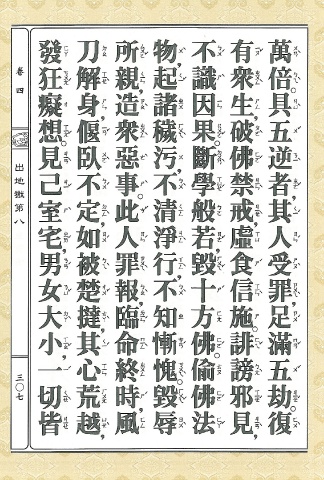 萬倍。具五逆者其人受罪足滿五劫。復
有衆生破佛禁戒虛食信施誹謗邪見,
不識因果。斷學般若毀十方佛偷佛法
物,起諸穢污,不清淨行不知慚愧毀辱
所親,造衆惡事。此人罪報,臨命終時,風
刀解身,偃臥不定,如被楚撻,其心荒越,
發狂癡想。見己室宅男女大小一切皆
卷四
出地獄第八
三〇七